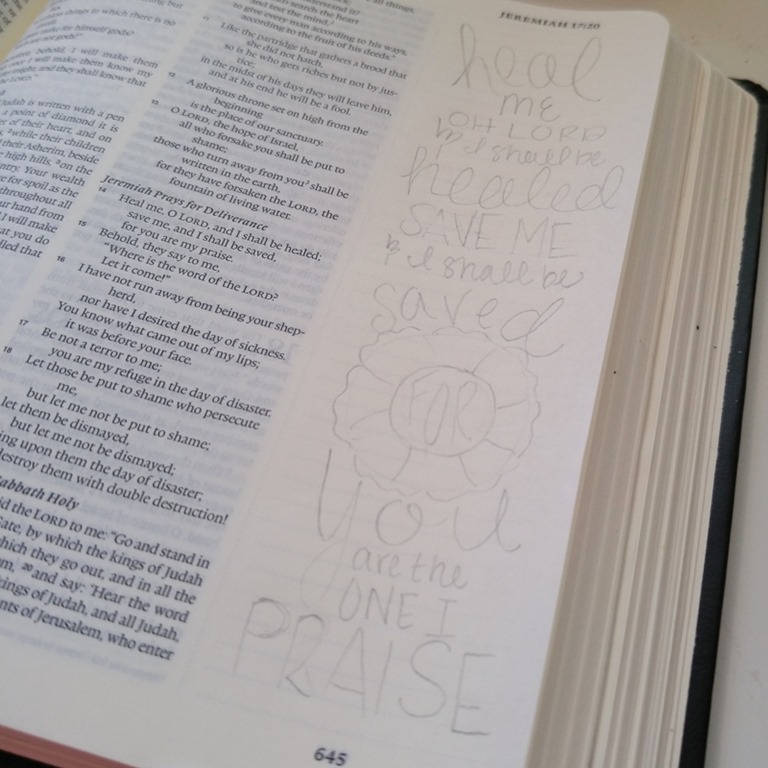 JEREMIAH 17:20
understand it?
search the heart
and test the mind,
to give every man according to his ways,
according to the fruit of his deeds."
Like the partridge that gathers a brood that
she did not hatch,
so is he who gets riches but not by jus-
tice;
in the midst of his days they will leave him,
and at his end he will be a fool.
12 A glorious throne set on high from the
beginning
is the place of our sanctuary.
13 O LORD, the hope of Israel,
all who forsake you shall be put to
shame;
those who turn away from you shall be
written in the earth,
for they have forsaken the LORD, the
fountain of living water.
Jeremiah Prays for Deliverance
14 Heal me, O LORD, and I shall be healed;
save me, and I shall be saved,
for you are my praise.
15 Behold, they say to me,
"Where is the word of the LORD?
Let it come!"
16 I have not run away from being your shep-
herd,
nor have I desired the day of sickness.
You know what came out of my lips;
it was before your face.
17 Be not a terror to me;
you are my refuge in the day of disaster.
18 Let those be put to shame who persecute
me,
but let me not be put to shame;
let them be dismayed,
but let me not be dismayed;
upon them the day of disaster;
destroy them with double destruction!
Sabbath Holy
the LORD to me: "Go and stand in
Gate, by which the kings of Judah
which they go out, and in all the
20 and say: 'Hear the word
kings of Judah, and all Judah,
of Jerusalem, who enter
behold, I will make them
I will make them know my
might, and they shall know that
Judah is written with a pen
a point of diamond it is
of their heart, and on
2 while their children
their Asherim, beside
high hills, 3 on the
Your wealth
for spoil as the
throughout all
hand from
I will make
you do
that
heal
ME
OH LORD
& I shall be
healed
SAVE ME
& I shall be
saved
FOR
you
are the
ONE I
PRAISE
645